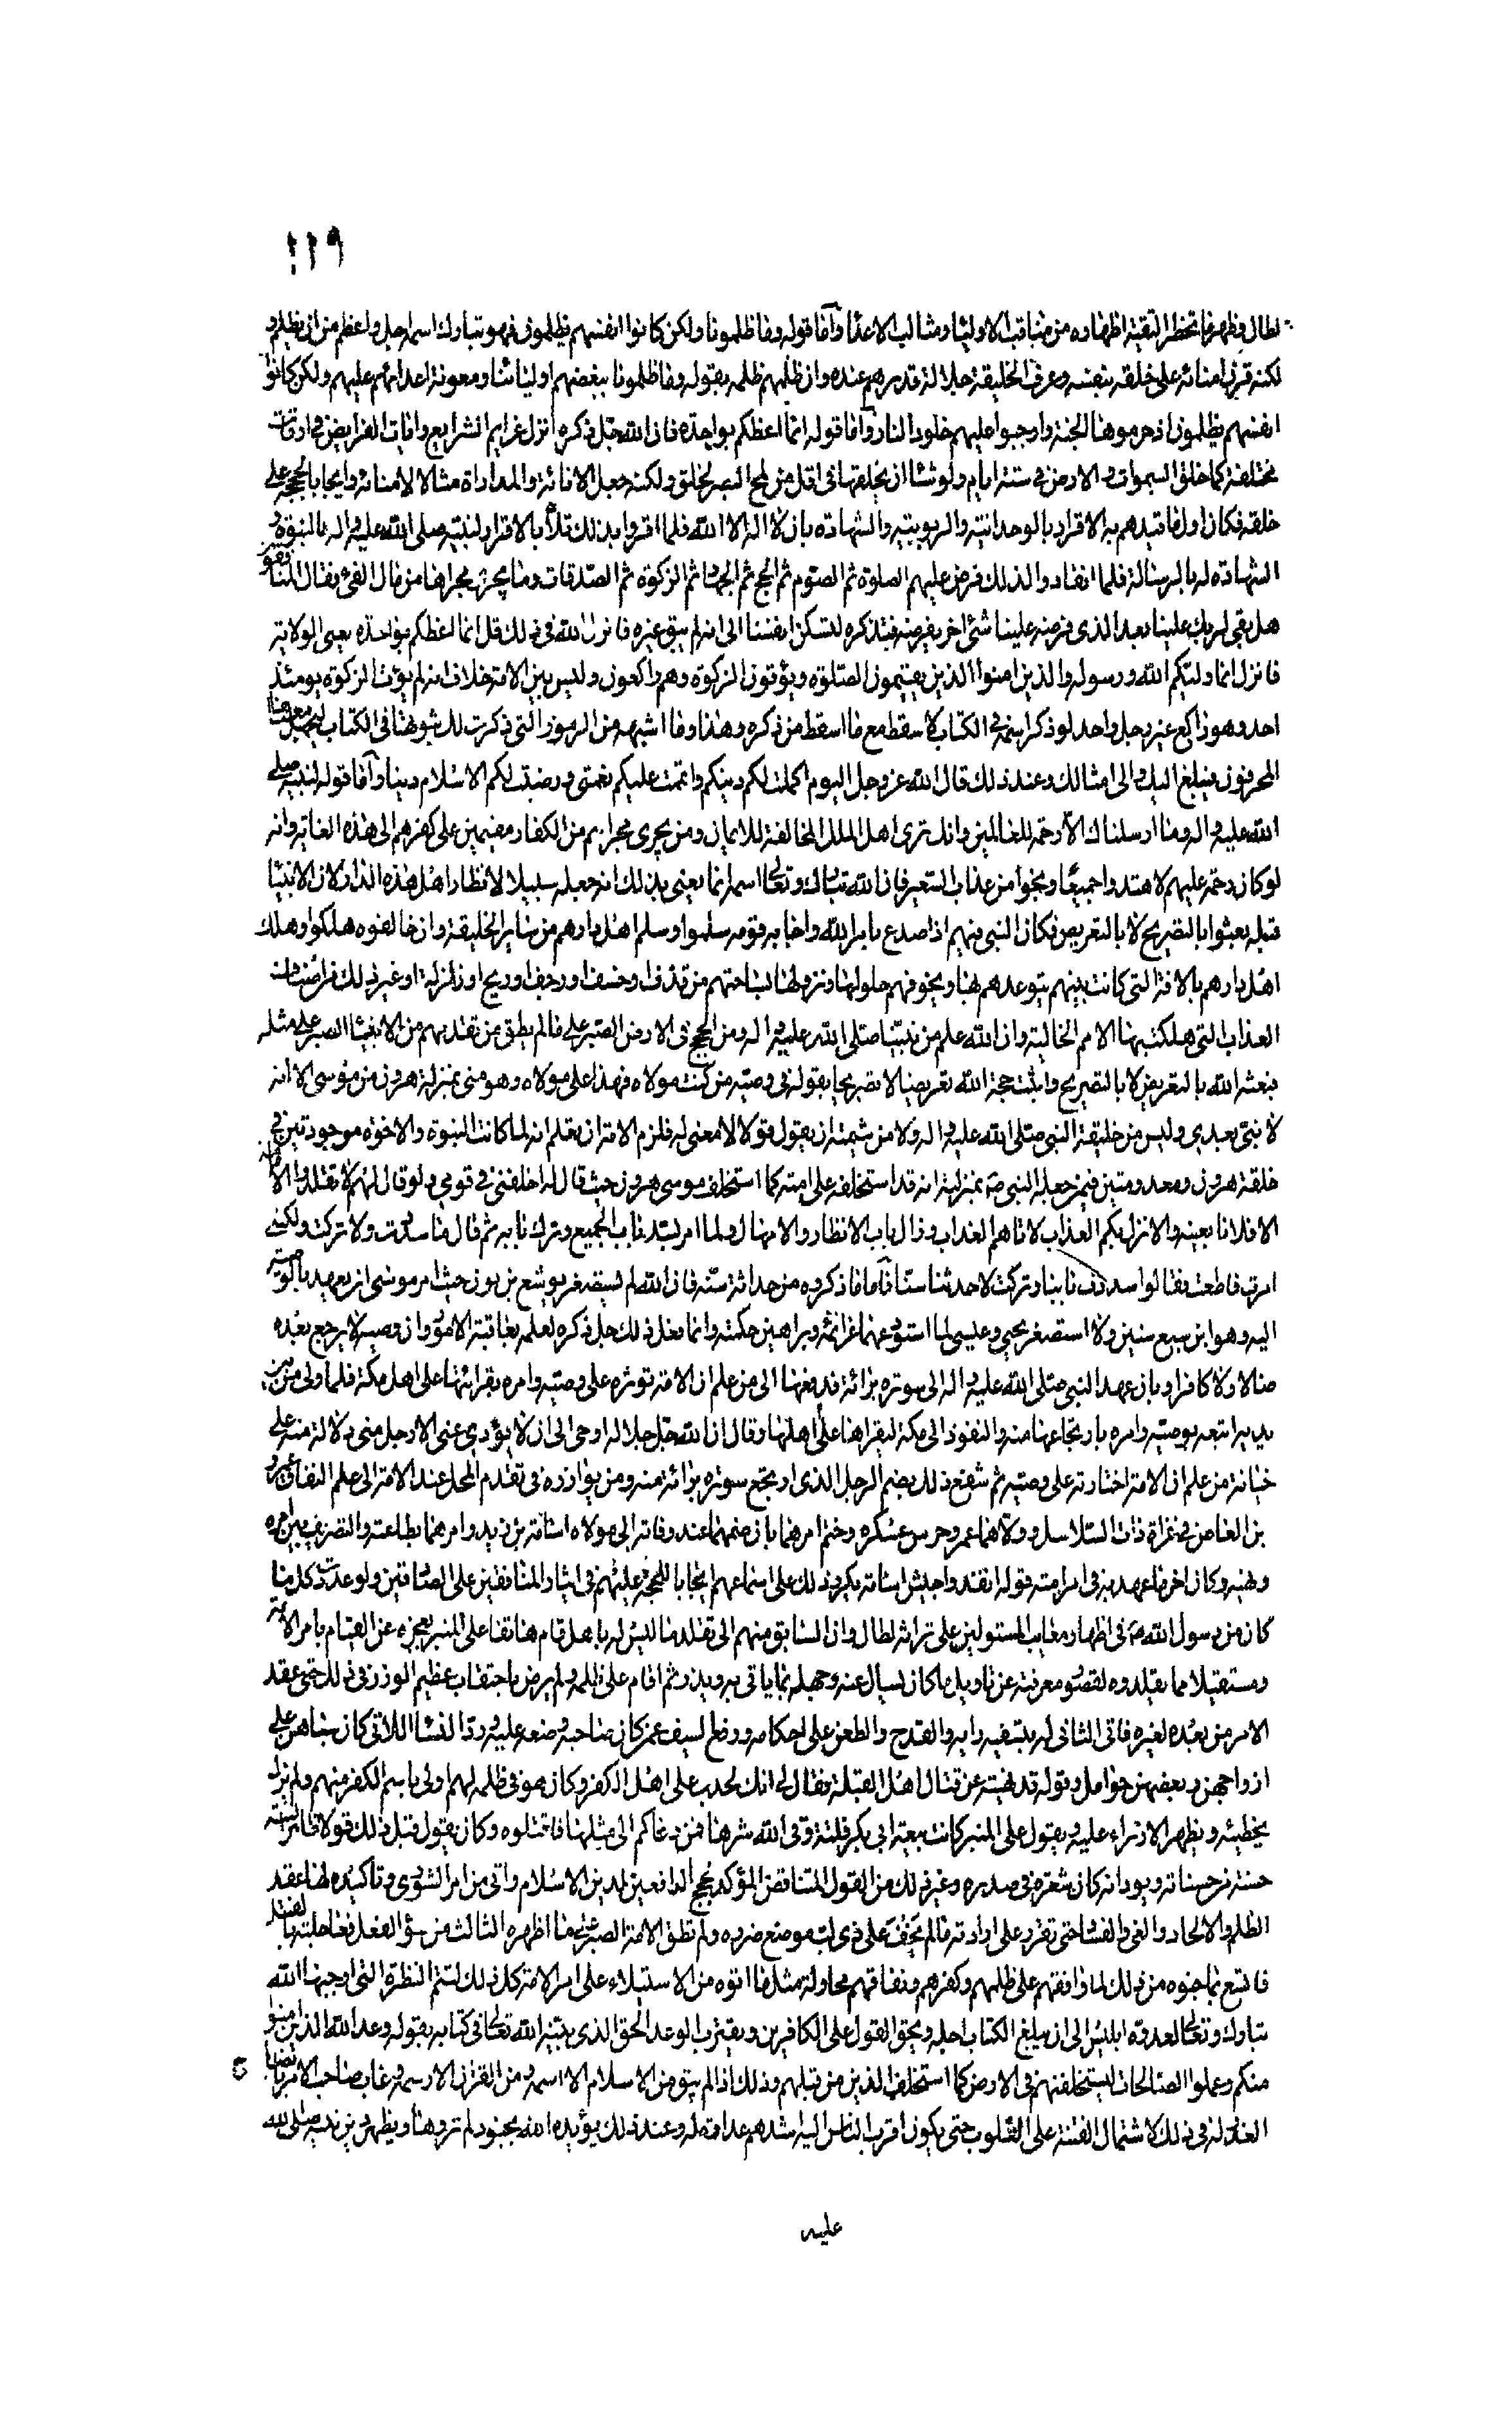 ١١٩
لطال وظهر ما تحظر التقية اظهاره من مناقب الاولياء ومثالب الاعداء وأما قوله وما ظلمونا ولكن كانوا انفسهم يظلمون فهو تبارك اسمه اجل واعظم من ان يظلم و
لكنه قرن امنائه على خلقه بنفسه وعرف الخليقة جلالة قدرهم عنده وان ظلمهم ظلمه بقوله وما ظلمونا ببغضهم اوليائنا ومعونة اعدائهم عليهم ولكن كانوا
انفسهم يظلمون اذ حرموها الجنة واوجبوا عليهم خلود النار وأما قوله انما اعظكم بواحدة فان الله جل ذكره انزل عزايم الشرايع وايات الفرايض في اوقات
مختلفة كما خلق السموات والارض في ستة ايام ولو شاء ان يخلقها في اقل من لمح البصر لخلق ولكنه جعل الاناة والمداراة مثالا لامنائه وايجابا للحجة على
خلقه فكان اول ما قيدهم به الاقرار بالوحدانية والربوبية والشهادة بان لا اله الا الله فلما اقروا بذلك تلاه بالاقرار لنبيه صلى الله عليه واله بالنبوة و
الشهادة له بالرسالة فلما انقادوا لذلك فرض عليهم الصلوة ثم الصوم ثم الحج ثم الجهاد ثم الزكوة ثم الصدقات وما يجري مجراها من مال الفئ فقال المنافقون
هل بقي لربك علينا بعد الذي فرضه علينا شئ اخر يفرضه فتذكره لتسكن انفسنا الى انه لم يبق غيره فانزل الله في ذلك قل انما اعظكم بواحدة يعني الولاية
فانزل انما وليكم الله ورسوله والذين امنوا الذين يقيمون الصلوة ويؤتون الزكوة وهم راكعون وليس بين الامة خلاف انه لم يؤت الزكوة يومئذ
احد وهو راكع غير رجل واحد لو ذكر اسمه في الكتاب لاسقط مع ما اسقط من ذكره وهذا وما اشبهه من الرموز التي ذكرت لك ثبوتها في الكتاب ليجهل معناها
المحرفون فيبلغ اليك والى امثالك وعند ذلك قال الله عز وجل اليوم اكملت لكم دينكم واتممت عليكم نعمتي ورضيت لكم الاسلام دينا وأما قوله لنبيه صلى
الله عليه واله وما ارسلناك الا رحمة للعالمين وانك ترى اهل الملل المخالفة للايمان ومن يجري مجراهم من الكفار مقيمين على كفرهم الى هذه الغاية وانه
لو كان رحمة عليهم لاهتدوا جميعا ونجوا من عذاب السعير فان الله تبارك وتعالى اسمه انما يعني بذلك انه جعله سبيلا لانظار اهل هذه الدار لان الانبياء
قبله بعثوا بالتصريح لا بالتعريض فكان النبي منهم اذا صدع بامر الله واجابه قومه سلموا وسلم اهل دارهم من ساير الخليقة وان خالفوه هلكوا وهلك
اهل دارهم بالافة التي كانت بينهم يتوعدهم بها ويخوفهم حلولها ونزولها بساحتهم من قذف او خسف او رجف او ريح او زلزلة او غير ذلك من اصناف
العذاب التي هلكت بها الامم الخالية وان الله علم من نبينا صلى الله عليه واله ومن الحجج في الارض الصبر على ما لم يطق من تقدمهم من الانبياء الصبر على مثله
فبعثه الله بالتعريض لا بالتصريح واثبت حجة الله تعريضا لا تصريحا بقوله في وصيه من كنت مولاه فهذا علي مولاه وهو مني بمنزلة هرون من موسى الا انه
لا نبي بعدي وليس من خليقة النبي صلى الله عليه واله ولا من شيمته ان يقول قولا لا معنى له فلزم الامة ان تعلم انه لما كانت النبوة والاخوة موجودتين في
خلقة هرون ومعدومتين فيمن جعله النبي ص بمنزلته انه قد استخلفه على امته كما استخلف موسى هرون حيث قال له اخلفني في قومي ولو قال لهم لا تقلدوا الامامة
الا فلانا بعينه والا نزل بكم العذاب لاتاهم العذاب وزال باب الانظار والامهال ولما امر بسد باب الجميع وترك بابه ثم قال ما سددت ولا تركت ولكني
امرت فاطعت فقالوا سددت بابنا وتركت لاحدثنا سنا فأما ما ذكروه من حداثة سنه فان الله لم يستصغر يوشع بن نون حيث امر موسى ان يعهد بالوصية
اليه وهو ابن سبع سنين ولا استصغر يحيى وعيسى لما استودعهما عزائمه وبراهين حكمته وانما فعل ذلك جل ذكره لعلمه بعاقبة الامور وان وصيه لا يرجع بعده
ضالا ولا كافرا وبان عهد النبي صلى الله عليه واله الى سورة برائة فدفعها الى من علم ان الامة تؤثره على وصيه وامره بقرائتها على اهل مكة فلما ولى من بين
يديه اتبعه بوصيه وامره بارتجاعها منه والنفوذ الى مكة ليقراها على اهلها وقال ان الله جل جلاله اوحى الي ان لا يؤدي عني الا رجل مني دلالة منه على
خيانة من علم ان الامة اختارته على وصيه ثم شفع ذلك بضم الرجل الذي ارتجع سورة برائة منه ومن يوازره في تقدم المحل عند الامة الى علم النفاق عمرو
بن العاص في غزاة ذات السلاسل وولاهما عمرو حرس عسكره وختم امرهما بان ضمهما عند وفاته الى مولاه اسامة بن زيد وامرهما بطاعته والتصريف بين امره
ونهيه وكان اخر ما عهد به في امر امته قوله انفذوا جيش اسامة يكرر ذلك على اسماعهم ايجابا للحجة عليهم في ايثار المنافقين على الصادقين ولو عددت كل ما
كان من رسول الله ص في اظهار معايب المستولين على تراثه لطال وان السابق منهم الى تقلد ما ليس له باهل قام هاتفا على المنبر بعجزه عن القيام بامر الامة
ومستقيلا مما تقلدوه لقصور معرفته عن تاويل ما كان يسال عنه وجهله بما ياتي به ويذر ثم اقام على ظلمه ولم يرض باحتقاب عظيم الوزر في ذلك حتى عقد
الامر من بعده لغيره فاتى الثاني له بتسفيه رايه والقدح والطعن على احكامه ورفع السيف عمن كان صاحبه وضعه عليه ورد النساء اللاتي كان سباهن على
ازواجهن وبعضهن حوامل وقوله قد نهيته عن قتال اهل القبلة فقال لي انك لحدب على اهل الكفر وكان هو في ظلمه لهم اولى باسم الكفر منهم ولم يزل
يخطئه ويظهر الازراء عليه ويقول على المنبر كانت بيعة ابي بكر فلتة وقى الله شرها فمن دعاكم الى مثلها فاقتلوه وكان يقول قبل ذلك قولا ظاهرا ليته
حسنة من حسناته ويود انه كان شعرة في صدره وغير ذلك من القول المتناقض المؤكد لحجج الدافعين لدين الاسلام واتى من امر الشورى وتاكيده بها عقد
الظلم والالحاد والغي والفساد حتى تقرر على ارادته ما لم يخف على ذي لب موضع ضرره ولم تطق الامة الصبر على ما اظهره الثالث من سؤ الفعل فعاجلته بالقتل
فاتسع بما جنوه من ذلك لمن وافقهم على ظلمهم وكفرهم ونفاقهم محاولة مثل ما اتوه من الاستيلاء على امر الامة كل ذلك لتتم النظرة التي اوجبها الله
تبارك وتعالى لعدوه ابليس الى ان يبلغ الكتاب اجله ويحق القول على الكافرين ويقترب الوعد الحق الذي بينه الله تعالى في كتابه بقوله وعد الله الذين امنوا
منكم وعملوا الصالحات ليستخلفنهم في الارض كما استخلف الذين من قبلهم وذلك اذا لم يبق من الاسلام الا اسمه ومن القران الا رسمه وغاب صاحب الامر بايضاح
العذر له في ذلك لاشتمال الفتنة على القلوب حتى يكون اقرب الناس اليه اشدهم عداوة له وعند ذلك يؤيده الله بجنود لم تروها ويظهر دين نبيه صلى الله
عليه